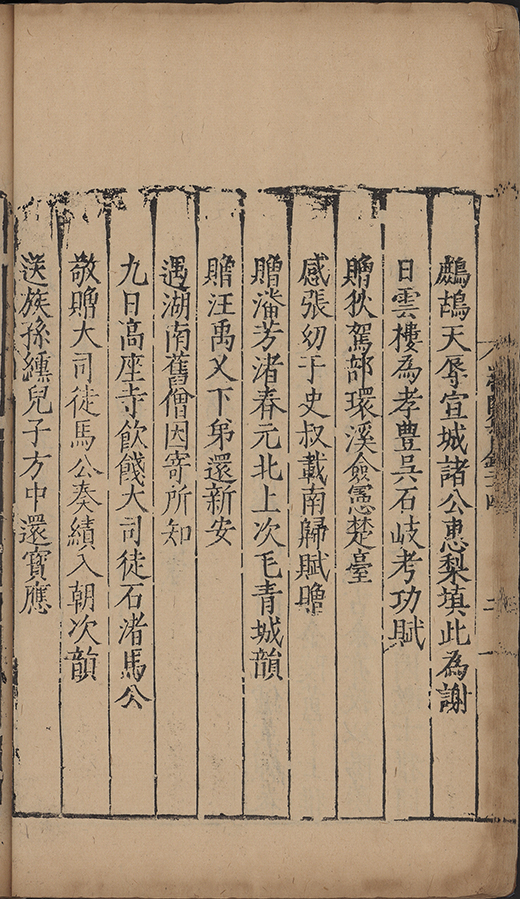 鷓鴣天辱宣城諸公惠梨填此為謝
日雲樓為孝豊吳石岐考功賦
贈狄駕部環溪僉憲楚臺
感張幼于史叔載南歸賦贈
贈潘芳渚春元北上次毛青城韻
贈汪禹乂下第還新安
遇湖南舊僧因寄所知
九日高座寺飲餞大司徒石渚馬公
敬贈大司徒馬公奏績入朝次韻
送族孫纁兒子方中還寶應